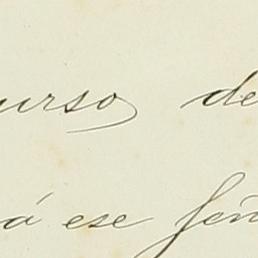 urso de
á ese señ